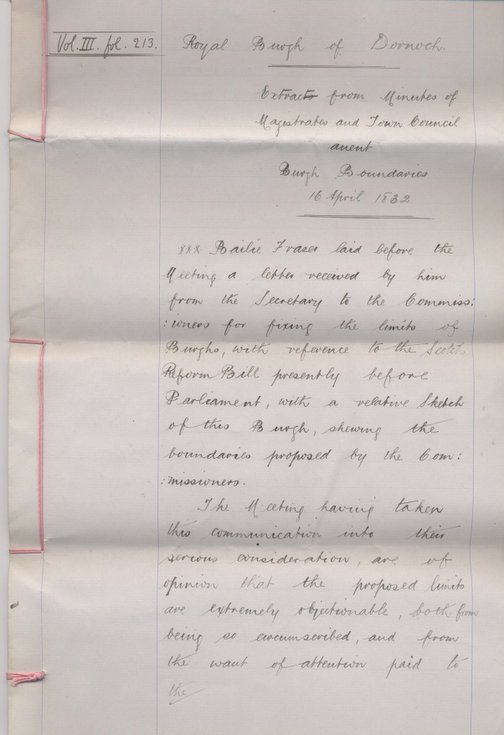 Vol. III. fol. 213.
Royal Burgh of Dornoch.
Extracts from Minutes of
Magistrates and Town Council
anent
Burgh Boundaries
16 April 1832
xxx Bailie Fraser laid before the
Meeting a letter received by him
from the Secretary to the Commiss:
:ioners for fixing the limits of
Burghs, with reference to the Scotch
Reform Bill presently before
Parliament, with a relative Sketch
of this Burgh, shewing the
boundaries proposed by the Com:
:missioners.
The Meeting having taken
this communication into their
serious consideration, are of
opinion that the proposed limits
are extremely objectionable, both from
being so circumscribed, and from
the want of attention paid to
the